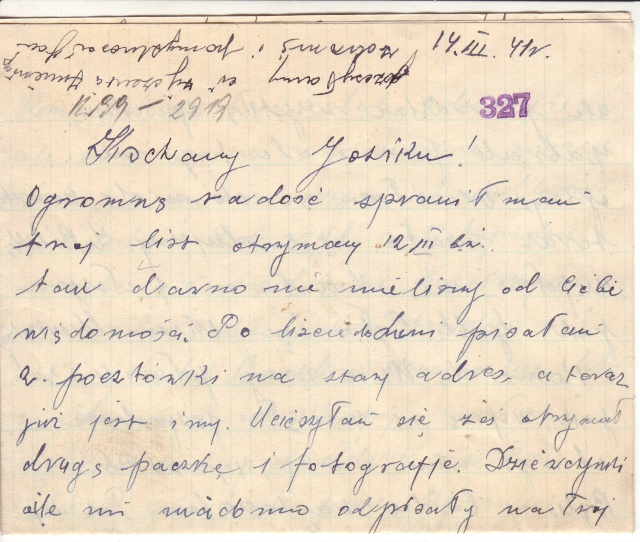 14. III. 41r.
327
Kochany Joziku!
Ogromną radość sprawił nam
twoj list otrzymany 12 III br.
tak dawno nie mielismy od Ciebie
wiadomości. Po Izciedodueru pisałam
2. pocztówki na stary adres, a teraz
już jest inny. Ucieszyłam się żeś otrzymał
drugą paczkę i fotografje. Dziewczynki
nie wiadomo odpisały na Twój